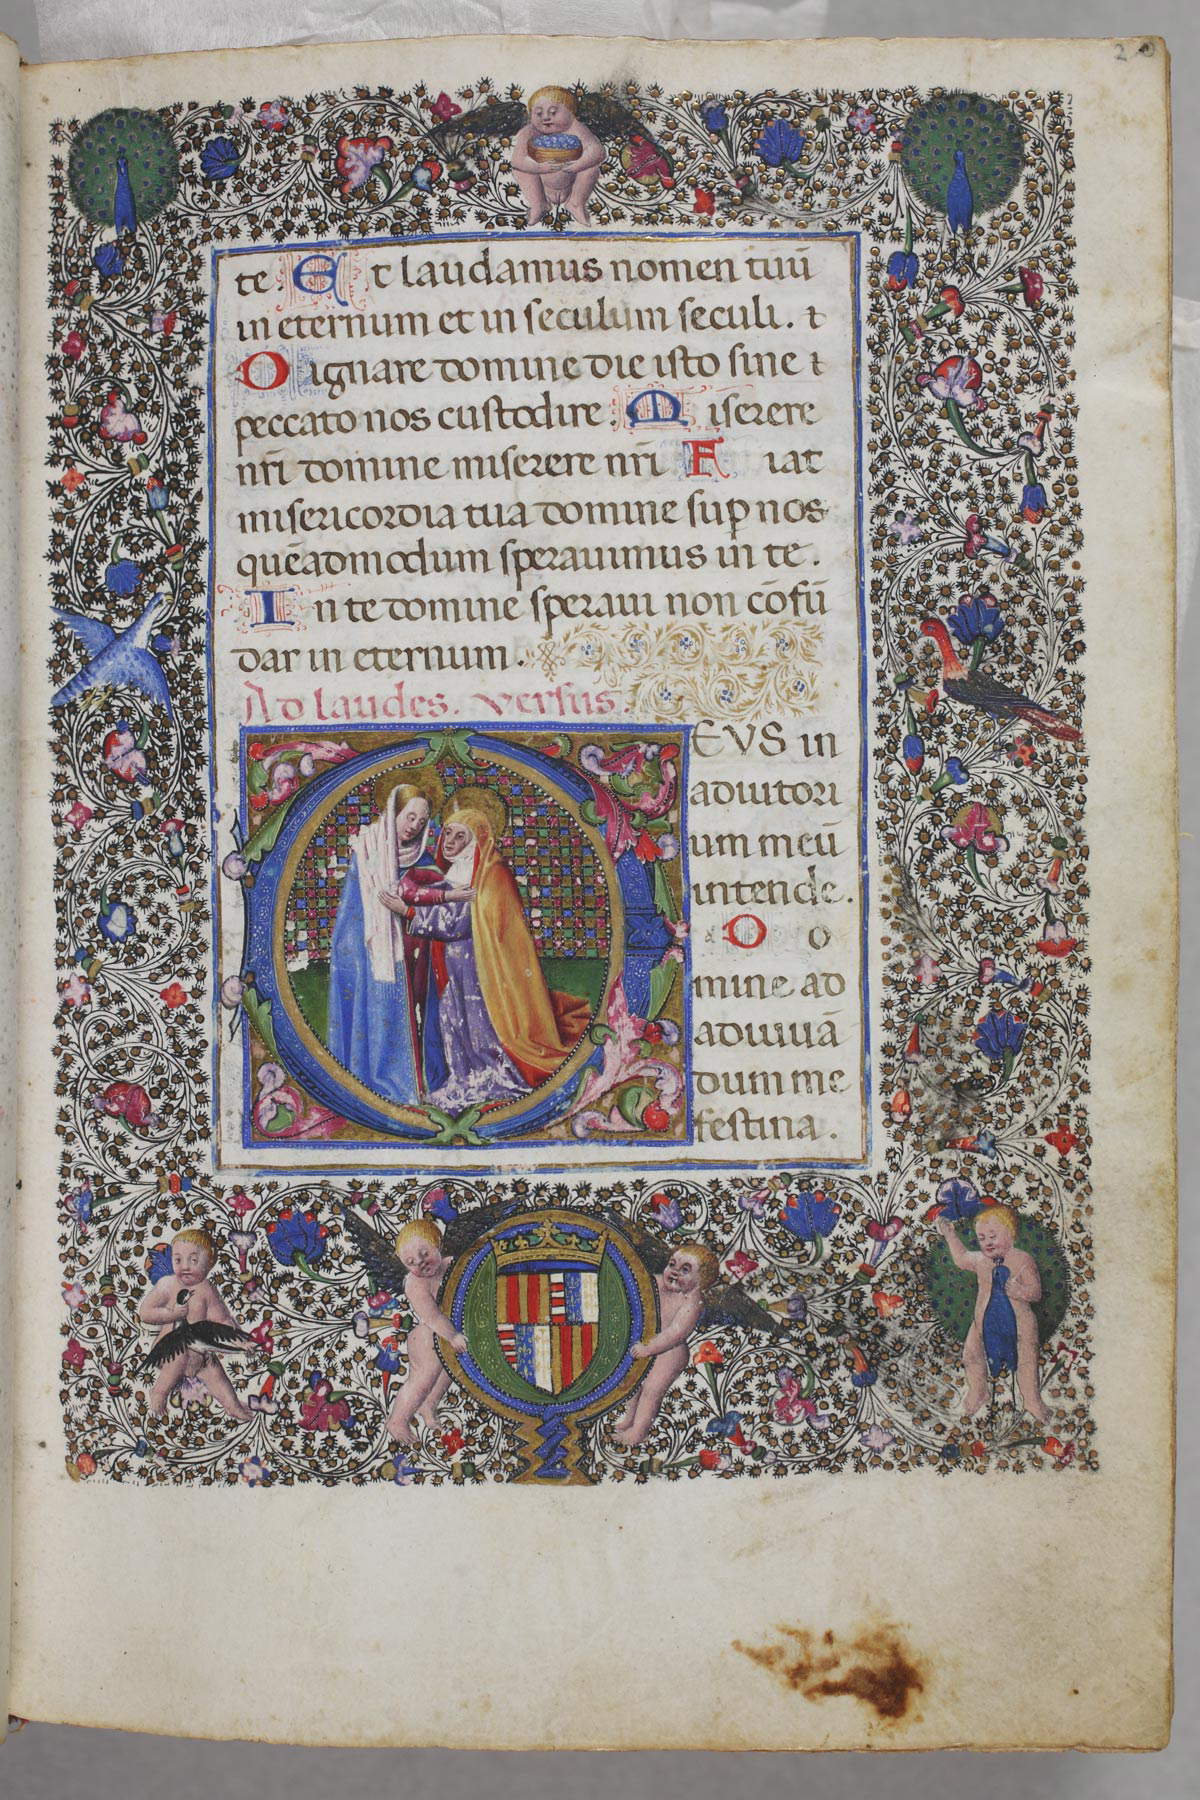 20
te Et laudamus nomen tuū
in eternum et in seculum seculi. τ
Dignare domine die isto sine τ
peccato nos custodire. Miserere
nr̄i domine miserere nr̄i Fiat
misericordia tua domine sup̱ nos
quēadmodum sperauimus in te.
In te domine speraui non cōfū
dar in eternum.
Ad laudes. versus.
DEVS in
adiutori
um meū
intende.
Do
mine ad
adiuuā
dum me
festina.